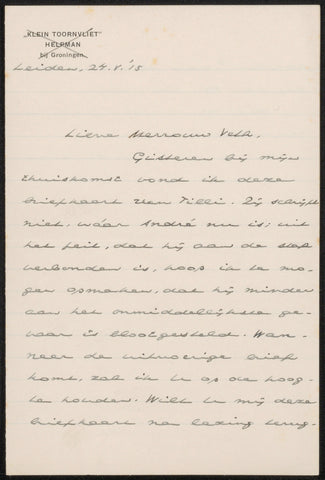 "KLEIN TOORNVLIET"
HELPMAN
bij Groningen
Leiden, 24.V.'15
Lieve Mevrouw Veth,
Gisteren bij mijn
thuiskomst vond ik deze
briefkaart van Tilli. Zij schrijft
niet, wáár André nu is; uit
het feit, dat hij aan de staf
verbonden is, hoop ik te mo-
gen opmaken, dat hij minder
aan het onmiddellijkste ge-
vaar is blootgesteld. Wan-
neer de uitvoerige brief
komt, zal ik U op de hoog-
te houden. Wilt U mij deze
briefkaart na lezing terug-